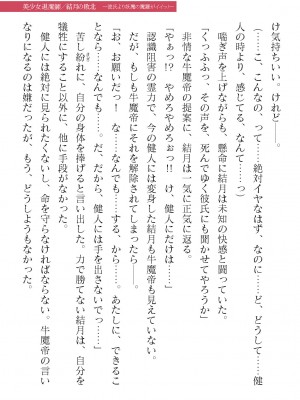 美少女退魔師／結月の敗北 ―彼氏より妖魔の魔羅がイイッ―
け気持ちいい。けれど――。
（……こ、こんなの、って……　絶対イヤなはず、なのに……ど、どうして……健
人の時より、感じてる、なんて……っ）
喘ぎ声を上げながらも、懸命に結月は未知の快感と闘っていた。
「くっふふっ、その声を、死んでゆく彼氏にも聞かせてやろうか」
非情な牛魔帝の提案に、結月は一気に正気に返る。
「やぁっ!?　やめろやめろぉっ!!　け、健人にだけは――」
認識阻害の霊力で、今の健人には変身した結月も牛魔帝も見えていない。
だが、もしも牛魔帝にそれを解除されてしまったら――。
「お、お願いだっ！　な……なんでも……する、から……。あたしに、できるこ
となら……なんでも……。だ、だから、健人には手を出さないで……っ」
苦し紛れに、自分の身体を捧げると言い出した。力で勝てない結月は、自分を
犠牲にすること以外に、他に手段がなかった。
健人には絶対に見られたくないし、命を守らなければならない。牛魔帝の言い
なりになるのは嫌だったが、もう、どうしようもなかった。